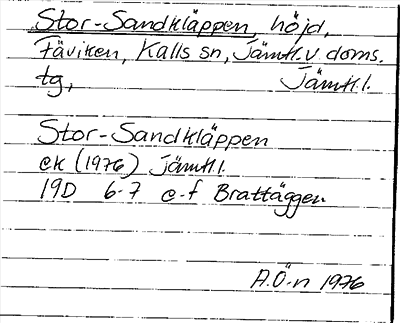 Stor-Sandkläppen, höjd,
Fäviken, Kalls sn, Jämtl. v doms.
tg, Jämtl. l.
Stor-Sandkläppen
ek (1976) Jämtl. l.
19D 6-7 e-f Brattäggen
A.Ö-n 1976